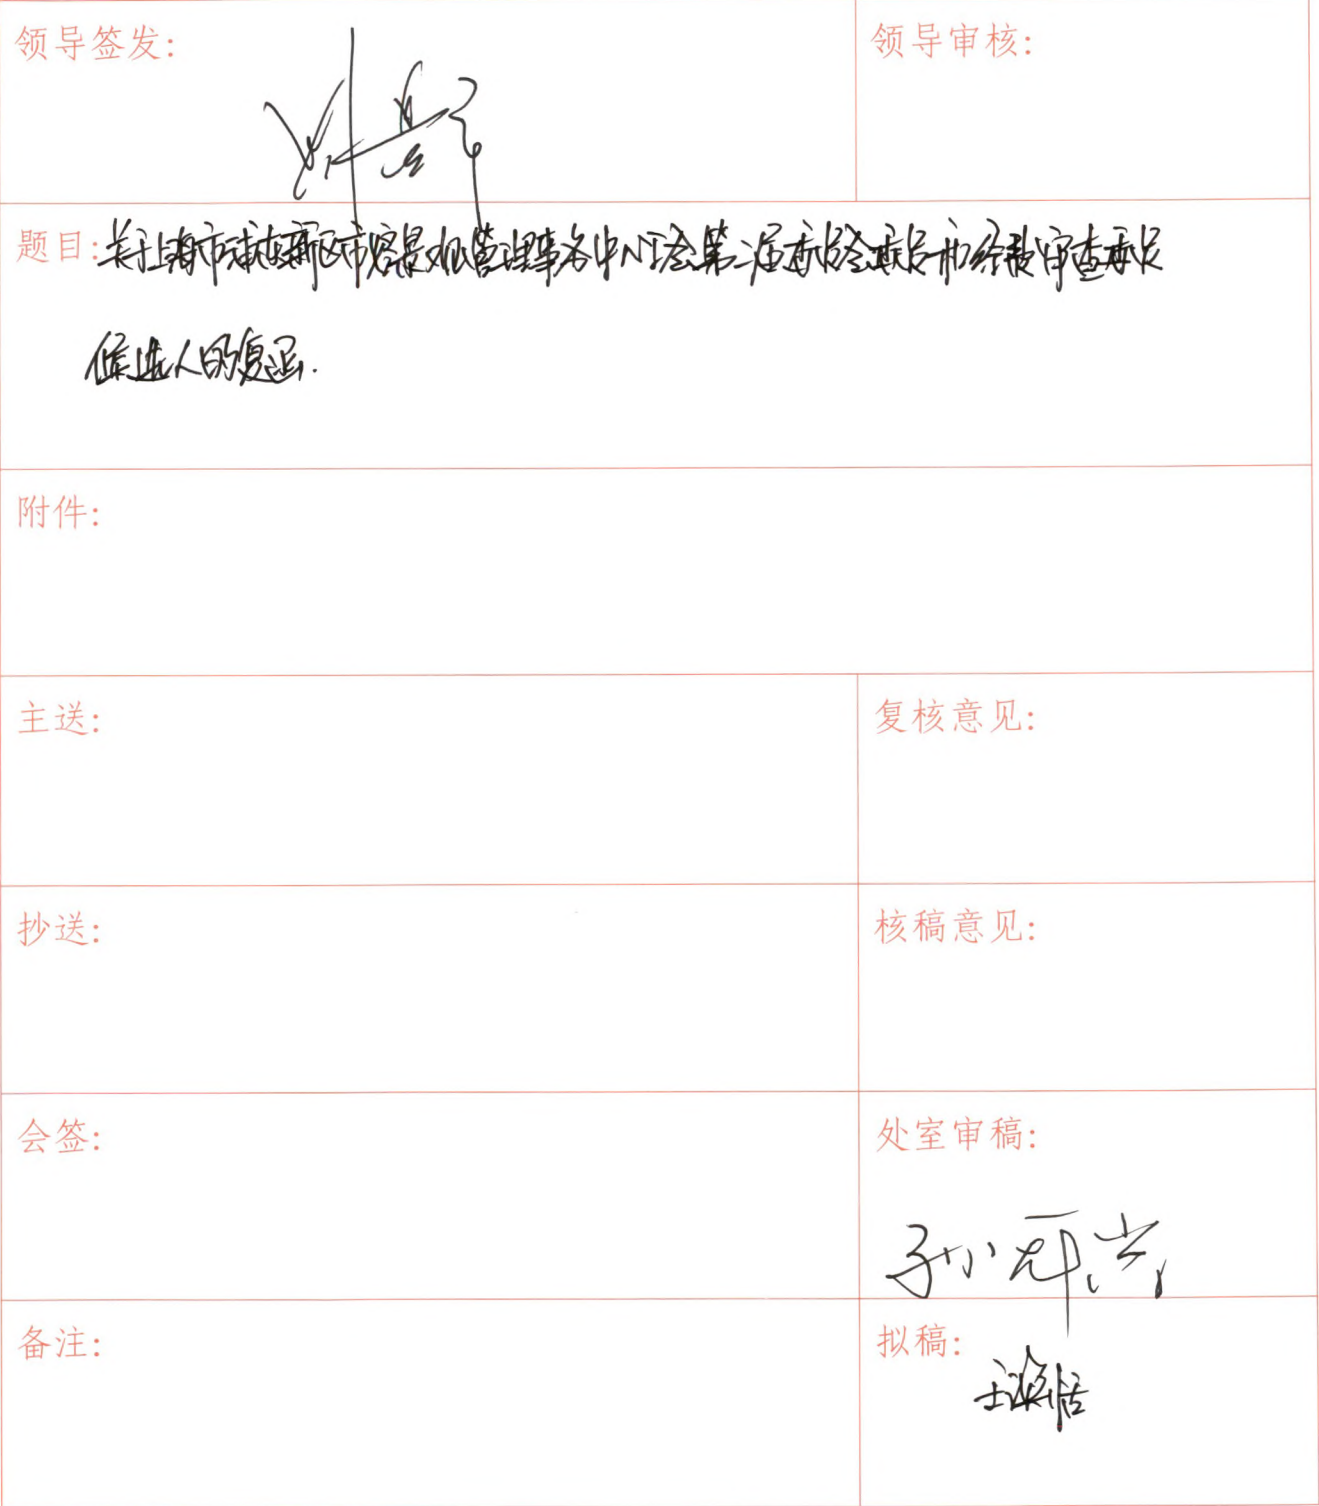 领导签发:
领导审核:
题目:关于上海市浦东新区市容景观管理事务中心工会第二届委员会委员和经费审查委员
候选人的复函.
附件:
主送:
复核意见:
抄送:
核稿意见:
会签:
处室审稿:
备注:
拟稿: